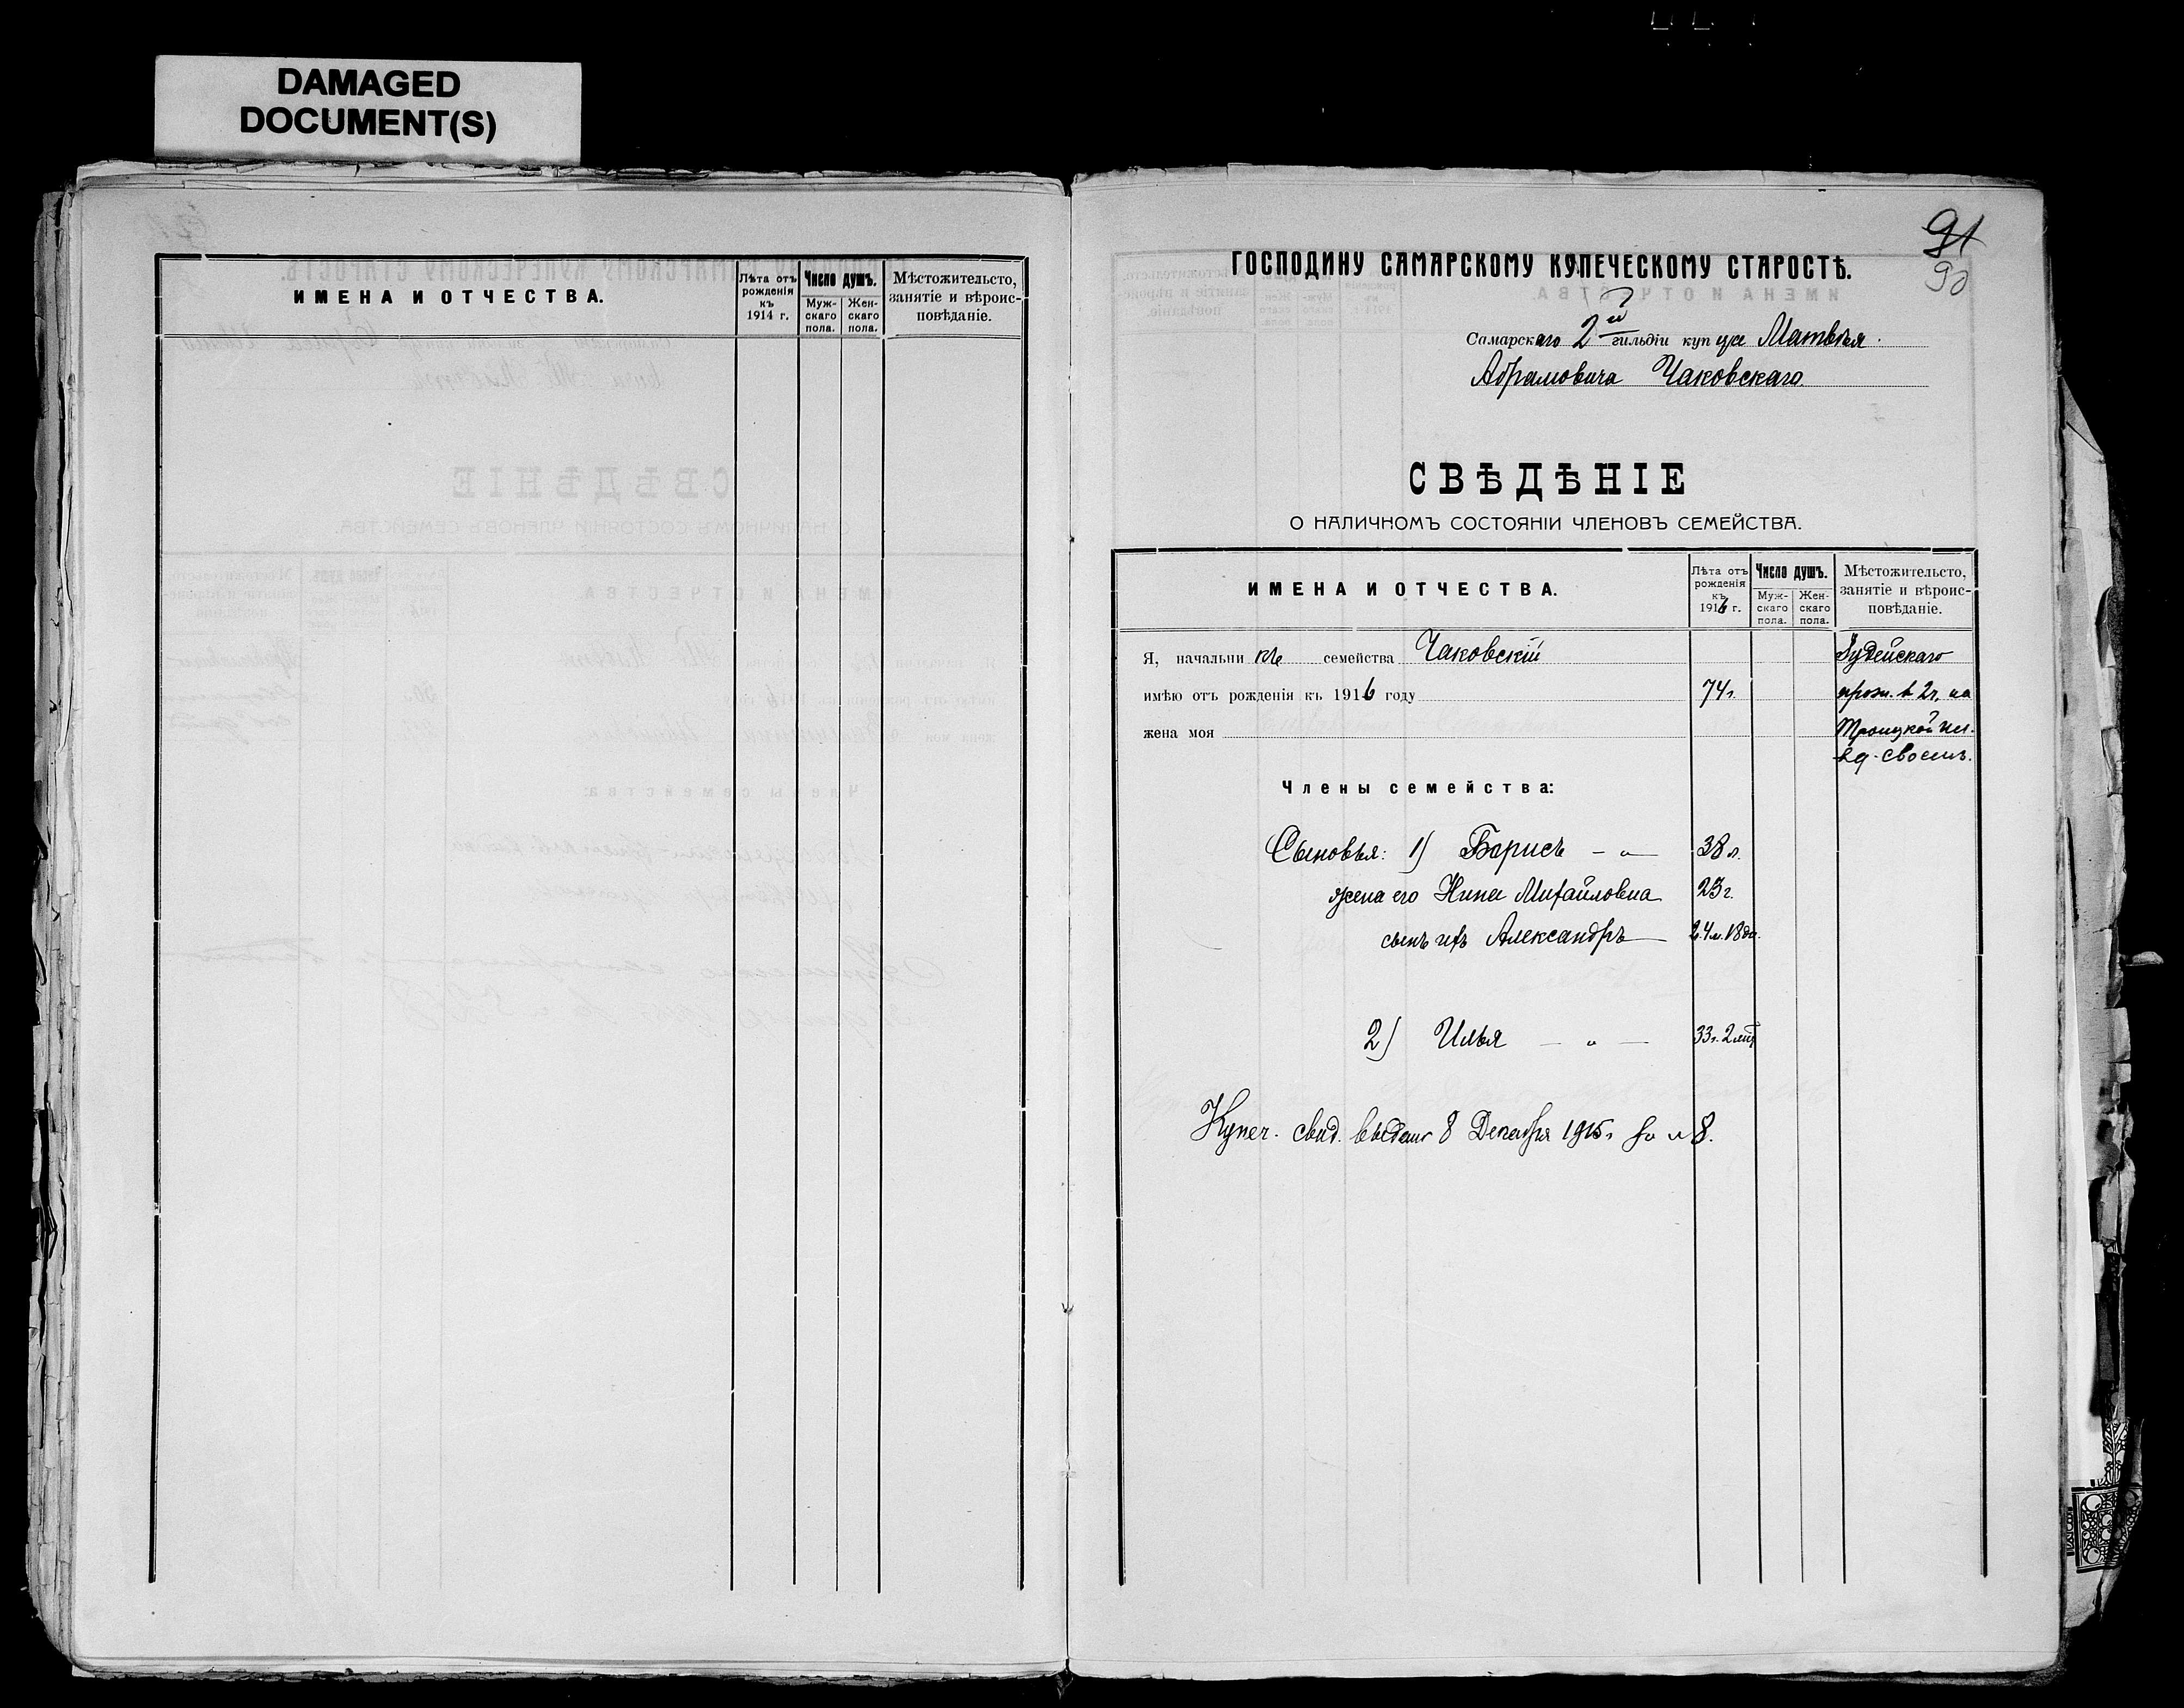 DAMAGED
DOCUMENT(S)
ИМЕНА И ОТЧЕСТВА.
Лѣта отъ рожденія къ 1914 г.
Число душъ.
Муж-скаго пола.
Жен-скаго пола.
Мѣстожительсто, занятіе и вѣроис-повѣданіе.
91
90
ГОСПОДИНУ САМАРСКОМУ КУПЕЧЕСКОМУ СТАРОСТѢ.
Самарскаго 2й гильдіи купца Матвѣя
Абрамовича Чаковскаго
СВѢДѢНІЕ
О НАЛИЧНОМЪ СОСТОЯНІИ ЧЛЕНОВЪ СЕМЕЙСТВА.
ИМЕНА И ОТЧЕСТВА.
Лѣта отъ рожденія къ 1916 г.
Число душъ.
Муж-скаго пола.
Жен-скаго пола.
Мѣстожительсто, занятіе и вѣроис-повѣданіе.
Я, начальникъ семейства Чаковскій Іудейскаго
имѣю отъ рожденія къ 1916 году 74 г. прож. в 2 ч. на
жена моя Троицкой ул.
в д. своемъ.
Члены семейства:
Сыновья: 1) Борисъ — " — 38 л.
жена его Нина Михайловна 23 г.
сынъ ихъ Александръ 4 м. 18 дн.
2) Илья — " — 33 г. 2 мѣс
Купеч. свид. выдано 8 Декабря 1915 г за № 8.